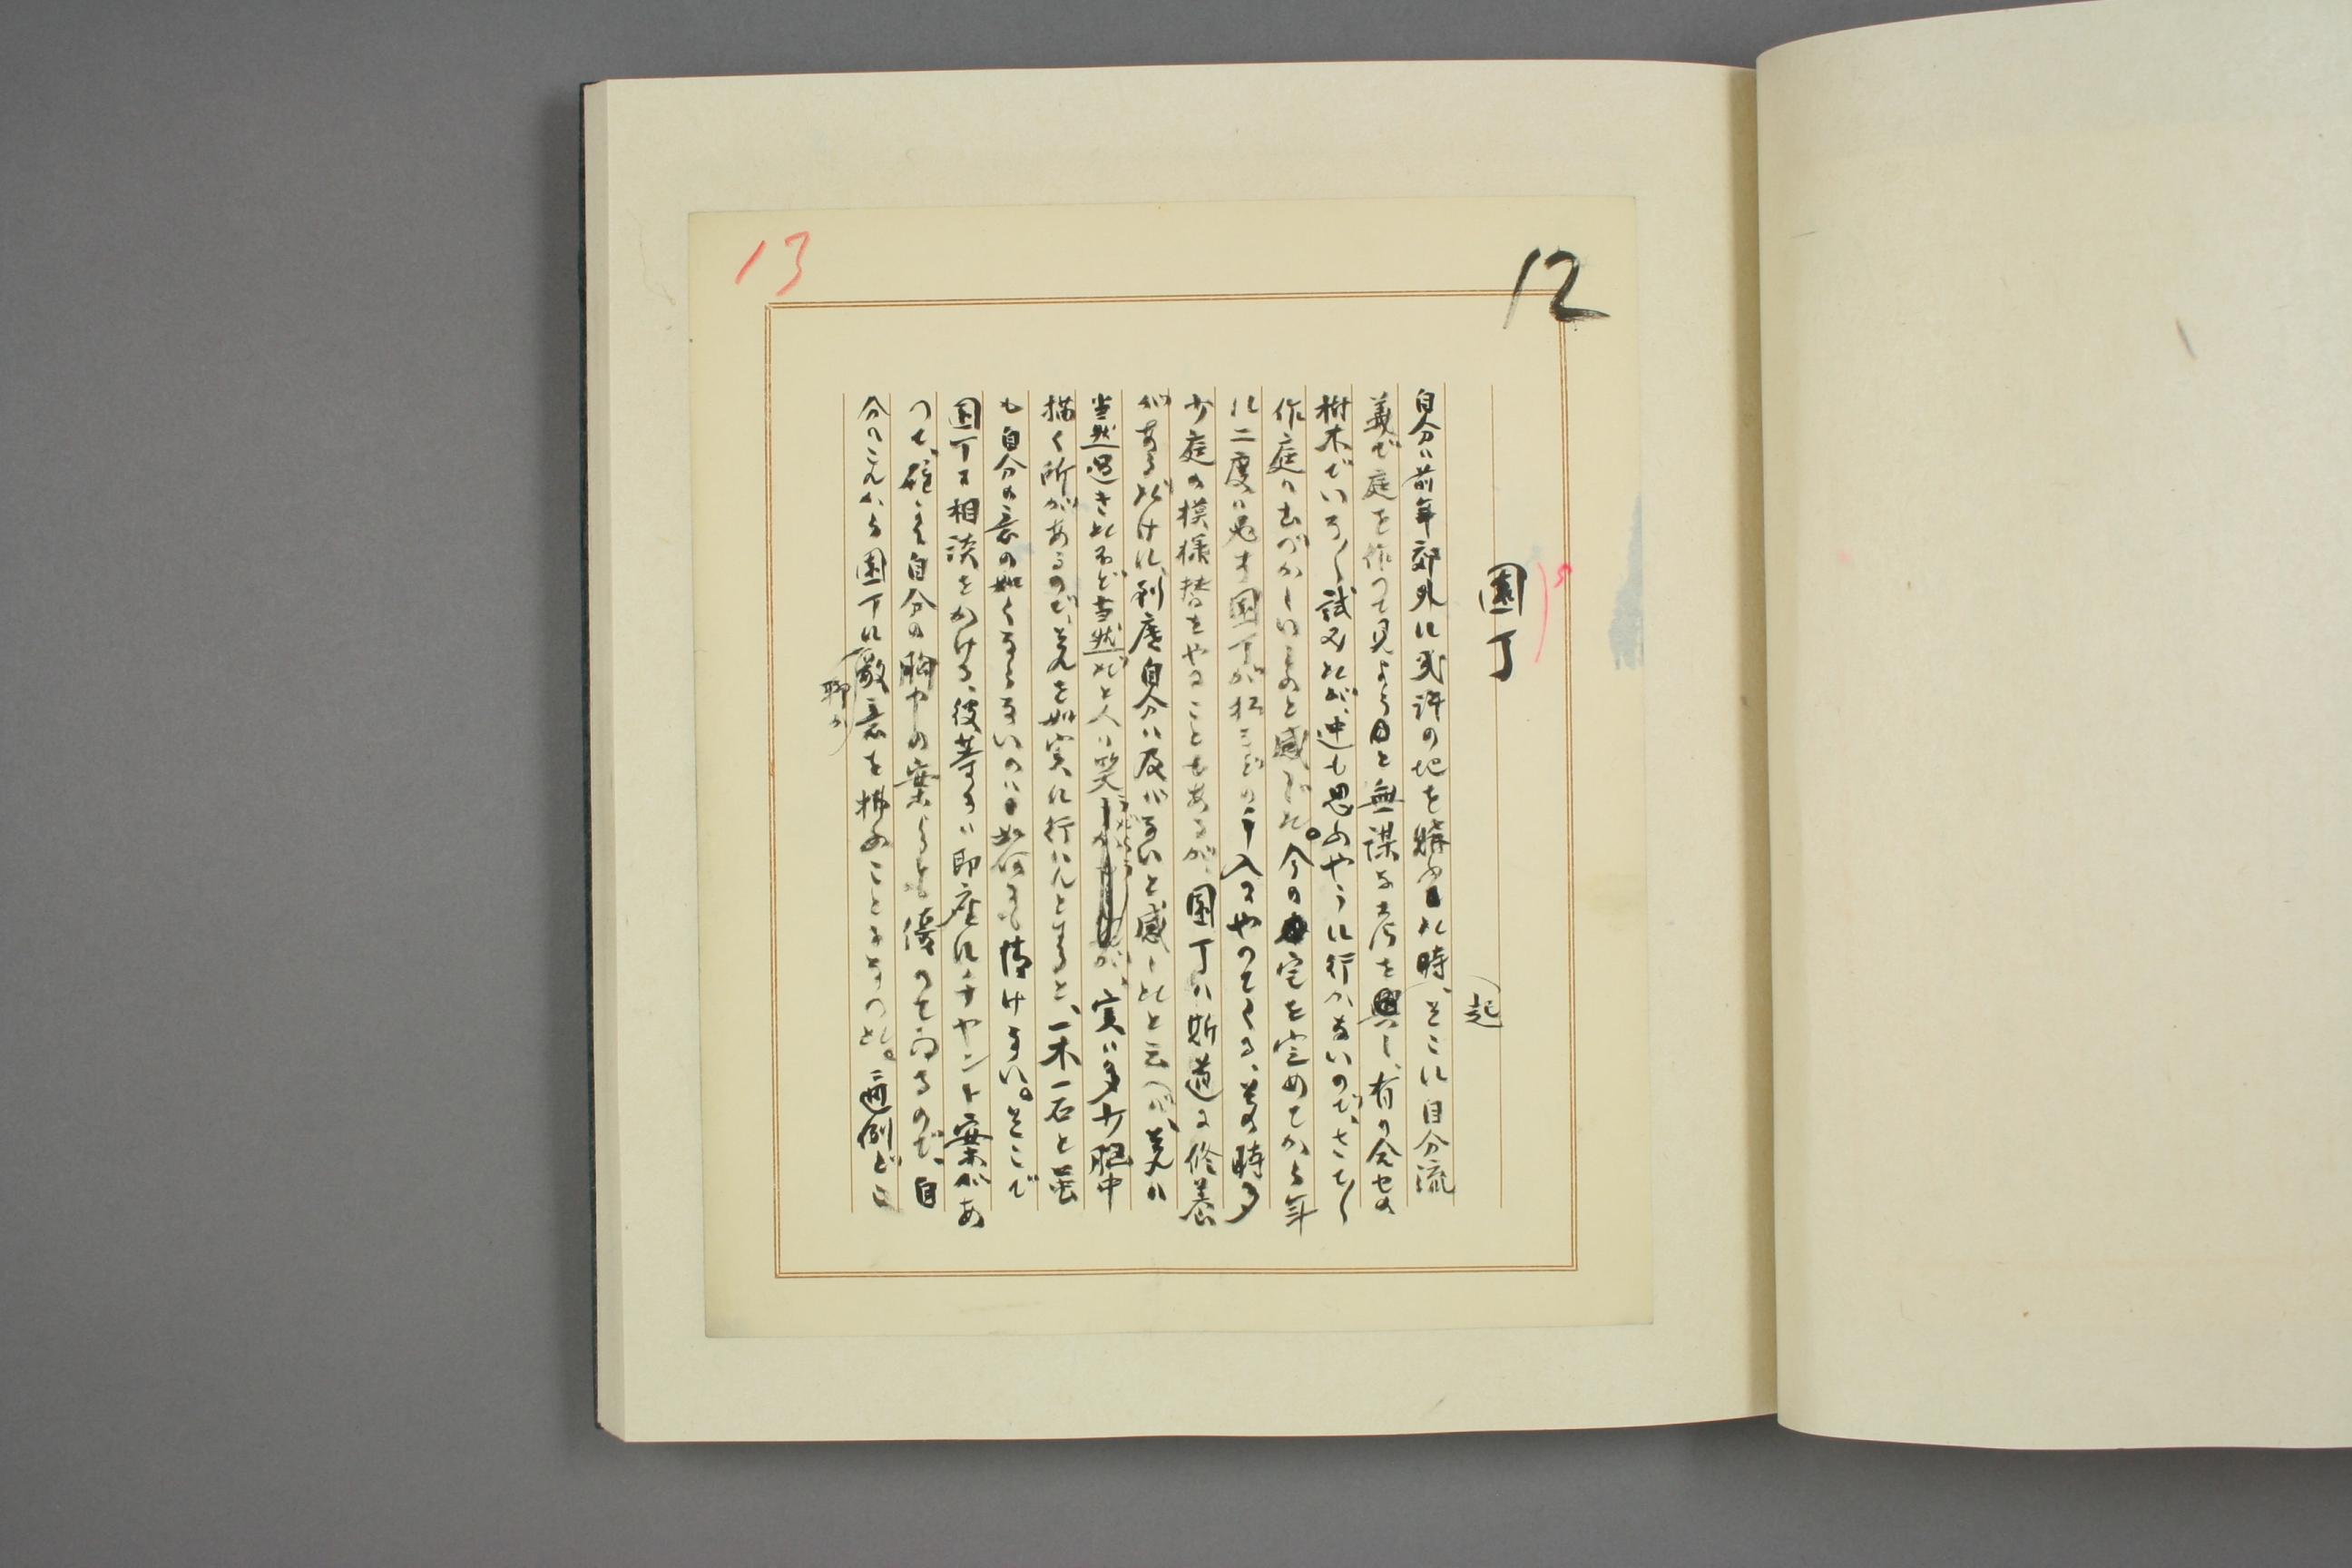 12
13
園丁
自分ハ前年郊外に或許の地を購ふた時、そこに自分流
義で庭を作つて見ようと無謀な考を興し、有り合せの
起
樹木でいろ〱試みたが、中〻思ふやうに行かないので、さて〱
作庭ハむづかしいものと感じた。今の宅を定めてから年
に二度ハ必ず園丁が松などの手入にやつてくる、その時多
少庭の模様替をやることもあるが、園丁ハ斯道に修養
があるだけに、到底自分ハ及ばないと感じたと云へバ、それハ
当然過ぎたほど当然だと人ハ笑ふだらうが、実ハ多少胸中
描く所があるので、それを如実に行ハんとすると、一木一石と雖
も自分の意の如くならないのハ如何にも情けない。そこで
園丁に相談をかける、彼等にハ即座にチヤント案があ
つて、確に自分の胸中の案よりも優つて
ゐるので、自
分ハこれから園丁に敬意を拂ふことゝなつた。適例ど
聊か